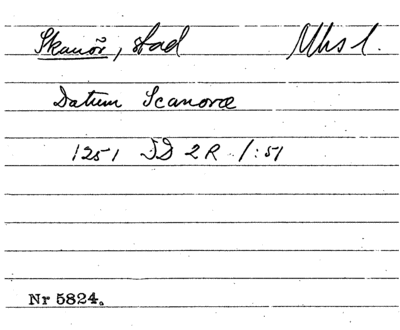 Skanör, stad Mhs l.
Datum Scanoræ
1251 DD 2R 1:51
Nr 5824.